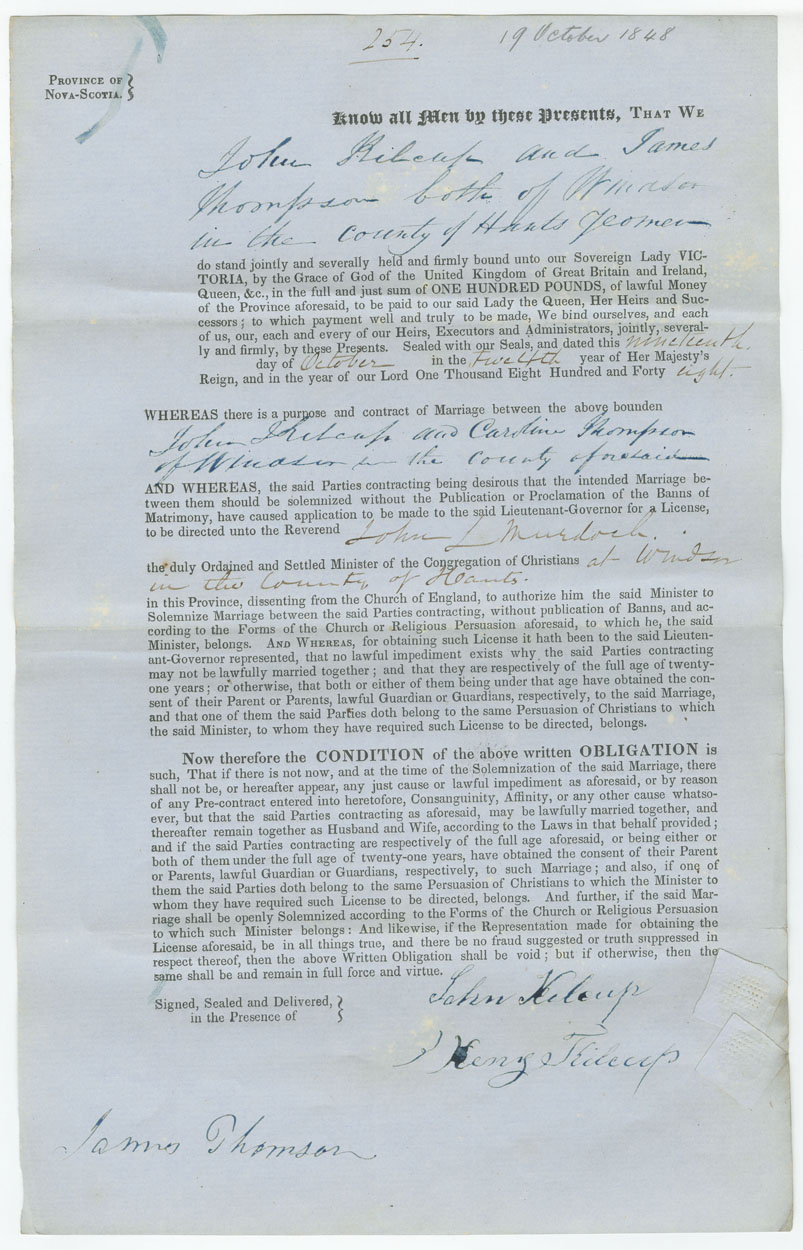 254.
19 October 1848
PROVINCE OF
NOVA-SCOTIA.
Know all Men by these Presents, THAT WE
John Kilcup and James
Thompson both of Windsor
in the County of Hants Yeomen
do stand jointly and severally held and firmly bound unto our Sovereign Lady VIC-
TORIA, by the Grace of God of the United Kingdom of Great Britain and Ireland,
Queen, &c., in the full and just sum of ONE HUNDRED POUNDS, of lawful Money
of the Province aforesaid, to be paid to our said Lady the Queen, Her Heirs and Suc-
cessors; to which payment well and truly to be made, We bind ourselves, and each
of us, our, each and every of our Heirs, Executors and Administrators, jointly, several-
ly and firmly, by these Presents. Sealed with our Seals, and dated this nineteenth
day of October in the twelfth year of Her Majesty's
Reign, and in the year of our Lord One Thousand Eight Hundred and Forty eight.
WHEREAS there is a purpose and contract of Marriage between the above bounden
John Kilcup and Caroline Thompson
of Windsor in the County aforesaid
AND WHEREAS, the said Parties contracting being desirous that the intended Marriage be-
tween them should be solemnized without the Publication or Proclamation of the Banns of
Matrimony, have caused application to be made to the said Lieutenant-Governor for a License,
to be directed unto the Reverend John L Murdoch.
the duly Ordained and Settled Minister of the Congregation of Christians at Windsor
in the County of Hants.
in this Province, dissenting from the Church of England, to authorize him the said Minister to
Solemnize Marriage between the said Parties contracting, without publication of Banns, and ac-
cording to the Forms of the Church or Religious Persuasion aforesaid, to which he, the said
Minister, belongs. AND WHEREAS, for obtaining such License it hath been to the said Lieuten-
ant-Governor represented, that no lawful impediment exists why the said Parties contracting
may not be lawfully married together; and that they are respectively of the full age of twenty-
one years; or otherwise, that both or either of them being under that age have obtained the con-
sent of their Parent or Parents, lawful Guardian or Guardians, respectively, to the said Marriage,
and that one of them the said Parties doth belong to the same Persuasion of Christians to which
the said Minister, to whom they have required such License to be directed, belongs.
Now therefore the CONDITION of the above written OBLIGATION is
such, That if there is not now, and at the time of the Solemnization of the said Marriage, there
shall not be, or hereafter appear, any just cause or lawful impediment as aforesaid, or by reason
of any Pre-contract entered into heretofore, Consanguinity, Affinity, or any other cause whatso-
ever, but that the said Parties contracting as aforesaid, may be lawfully married together, and
thereafter remain together as Husband and Wife, according to the Laws in that behalf provided;
and if the said Parties contracting are respectively of the full age aforesaid, or being either or
both of them under the full age of twenty-one years, have obtained the consent of their Parent
or Parents, lawful Guardian or Guardians, respectively, to such Marriage; and also, if one of
them the said Parties doth belong to the same Persuasion of Christians to which the Minister to
whom they have required such License to be directed, belongs. And further, if the said Mar-
riage shall be openly Solemnized according to the Forms of the Church or Religious Persuasion
to which such Minister belongs: And likewise, if the Representation made for obtaining the
License aforesaid, be in all things true, and there be no fraud suggested or truth suppressed in
respect thereof, then the above Written Obligation shall be void; but if otherwise, then the
same shall be and remain in full force and virtue.
Signed, Sealed and Delivered,
in the Presence of
John Kilcup
Heny Kilcup
James Thomson